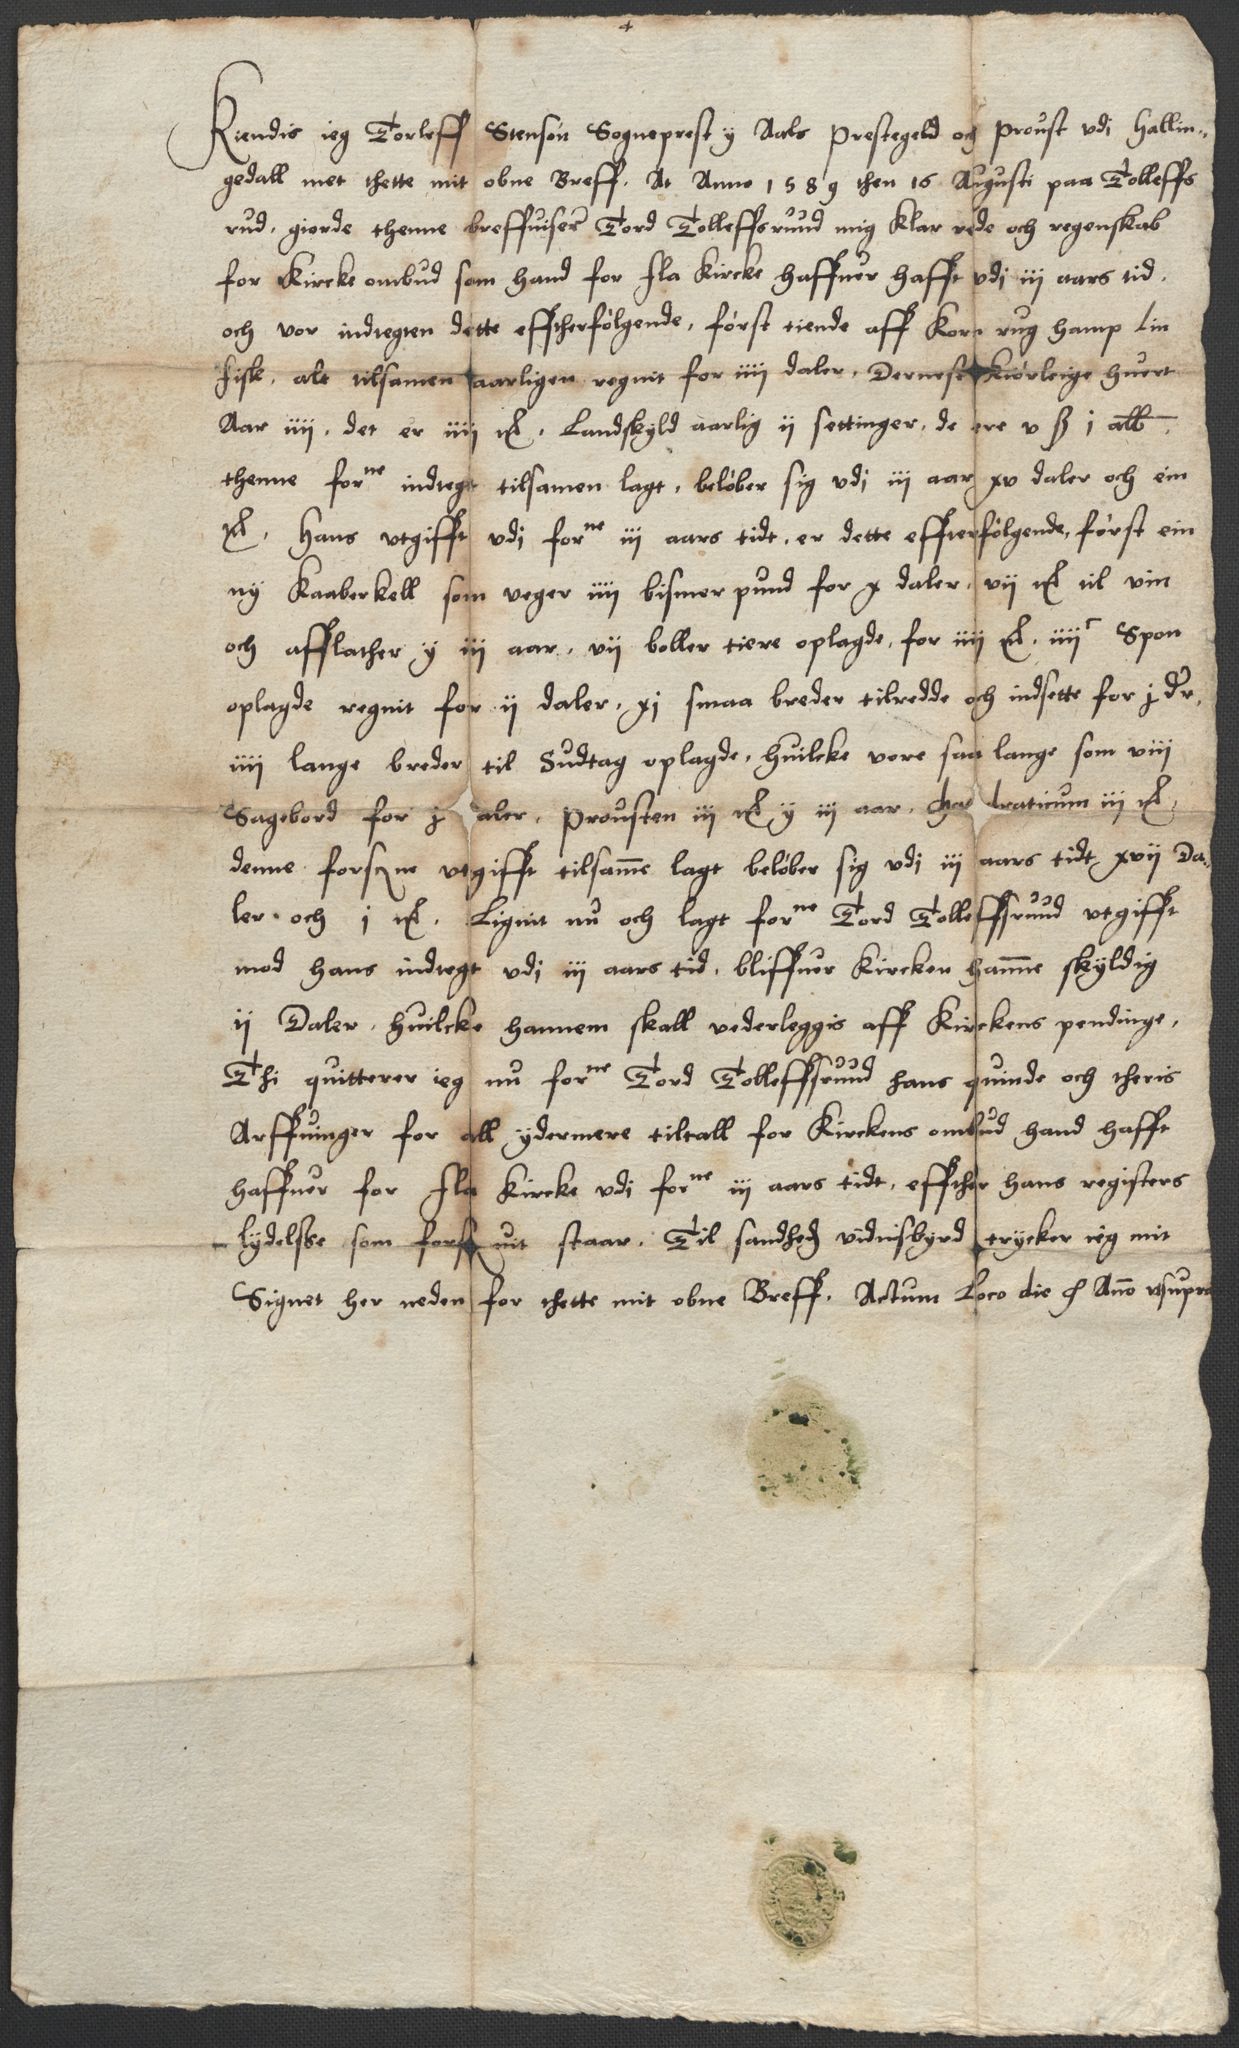 Kiendis ieg Torleff Stensøn Sogneprest ÿ Aals Prestegeld och Proust vdj Hallin-
gedall met thette mit obne Breff. At Anno 1589 then 16 Augusti paa Tolleffs
rud. giorde thenne breffuiser Tord Tolleffsruud mig klar rede och regenskab
for Kircke ombud som hand for Fla Kircke haffuer hafft vdj iij aars tid.
och vor indtegten dette effterfølgende, først tiende aff Korn rug hamp lin
fisk. alt tilsamen aarligen regnit for iiij daler. Dernest Kiørleige huert
Aar iiij. det er iiij. Landskyld aarlig ij settinger. de ere v ß j alb.
thenne forne indtegt tilsamen lagt, beløber sig vdj iij aar xv daler och ein
Hans vtgifft vdj forne iij aars tidt. er dette effterfølgende, først ein
nÿ Kaaberkell som veger iiij bismer pund for x daler. vij til vin
och afflather ÿ iij aar. vij boller tiere oplagde, for iiij. iiijc Spon
oplagde regnit for ij daler. xj smaa breder tilredde och indsette for j dr.
iiij lange breder til Sudtag oplagde, huilcke vore saa lange som viij
Sagebord for j daler. Prousten iij ÿ iij aar. draticum iij.
denne forschne vtgifft tilsamme lagt beløber sig vdj iij aars tidt xvij Da-
ler och j. Lignit nu och lagt forne Tord Tolleffsruud vtgifft
mod hans indtegt vdj iij aars tid. bliffuer Kircken hamme skÿldig
ij Daler. huilcke hannem skall vederleggis aff Kirckens pendinge.
Thi quitterer ieg nu forne Tord Tolleffsruud hans quinde och theris
Arffuinger for all ÿdermere tiltall for Kirckens ombud hand hafft
haffuer for Fla Kircke vdj forne iij aars tidt, effther hans registers
lÿdelsse som forschuit staar. Til sandhed vidnisbyrd trÿcker ieg mit
Signet her neden for thette mit obne Breff. Actum Loco die et Anno vtsupra